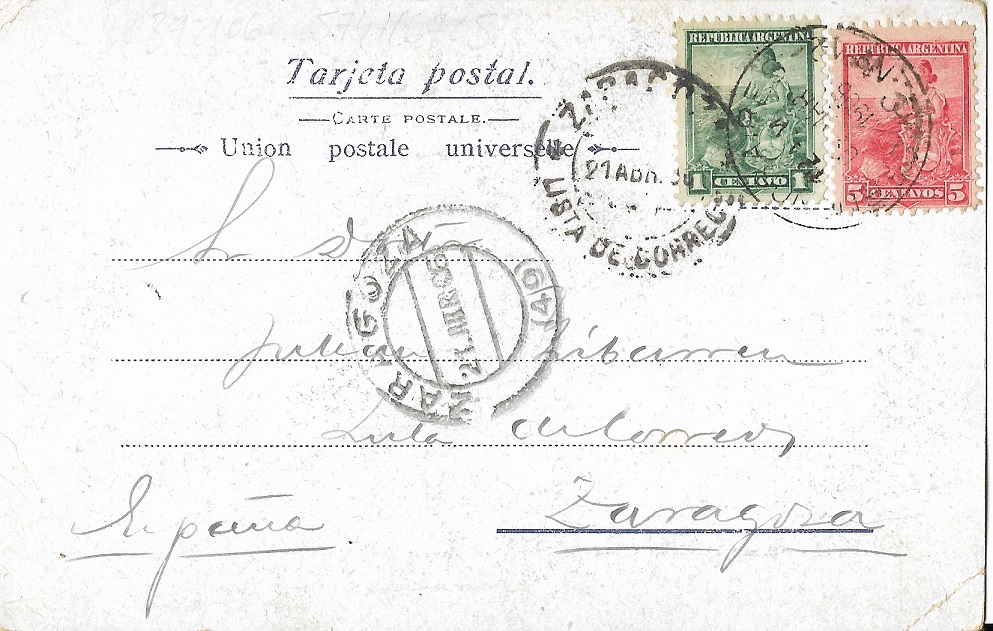 Tarjeta postal.
CARTE POSTALE.
Union postale universelle
REPUBLICA ARGENTINA
1 CENTAVO 1
REPUBLICA ARGENTINA
5 CENTAVOS 5
ZARAGOZA
21 ABR.
LISTA DE CORREOS
ZARAGOZA
Sr Dn
Julian
Lista de Correos
Zaragoza
España